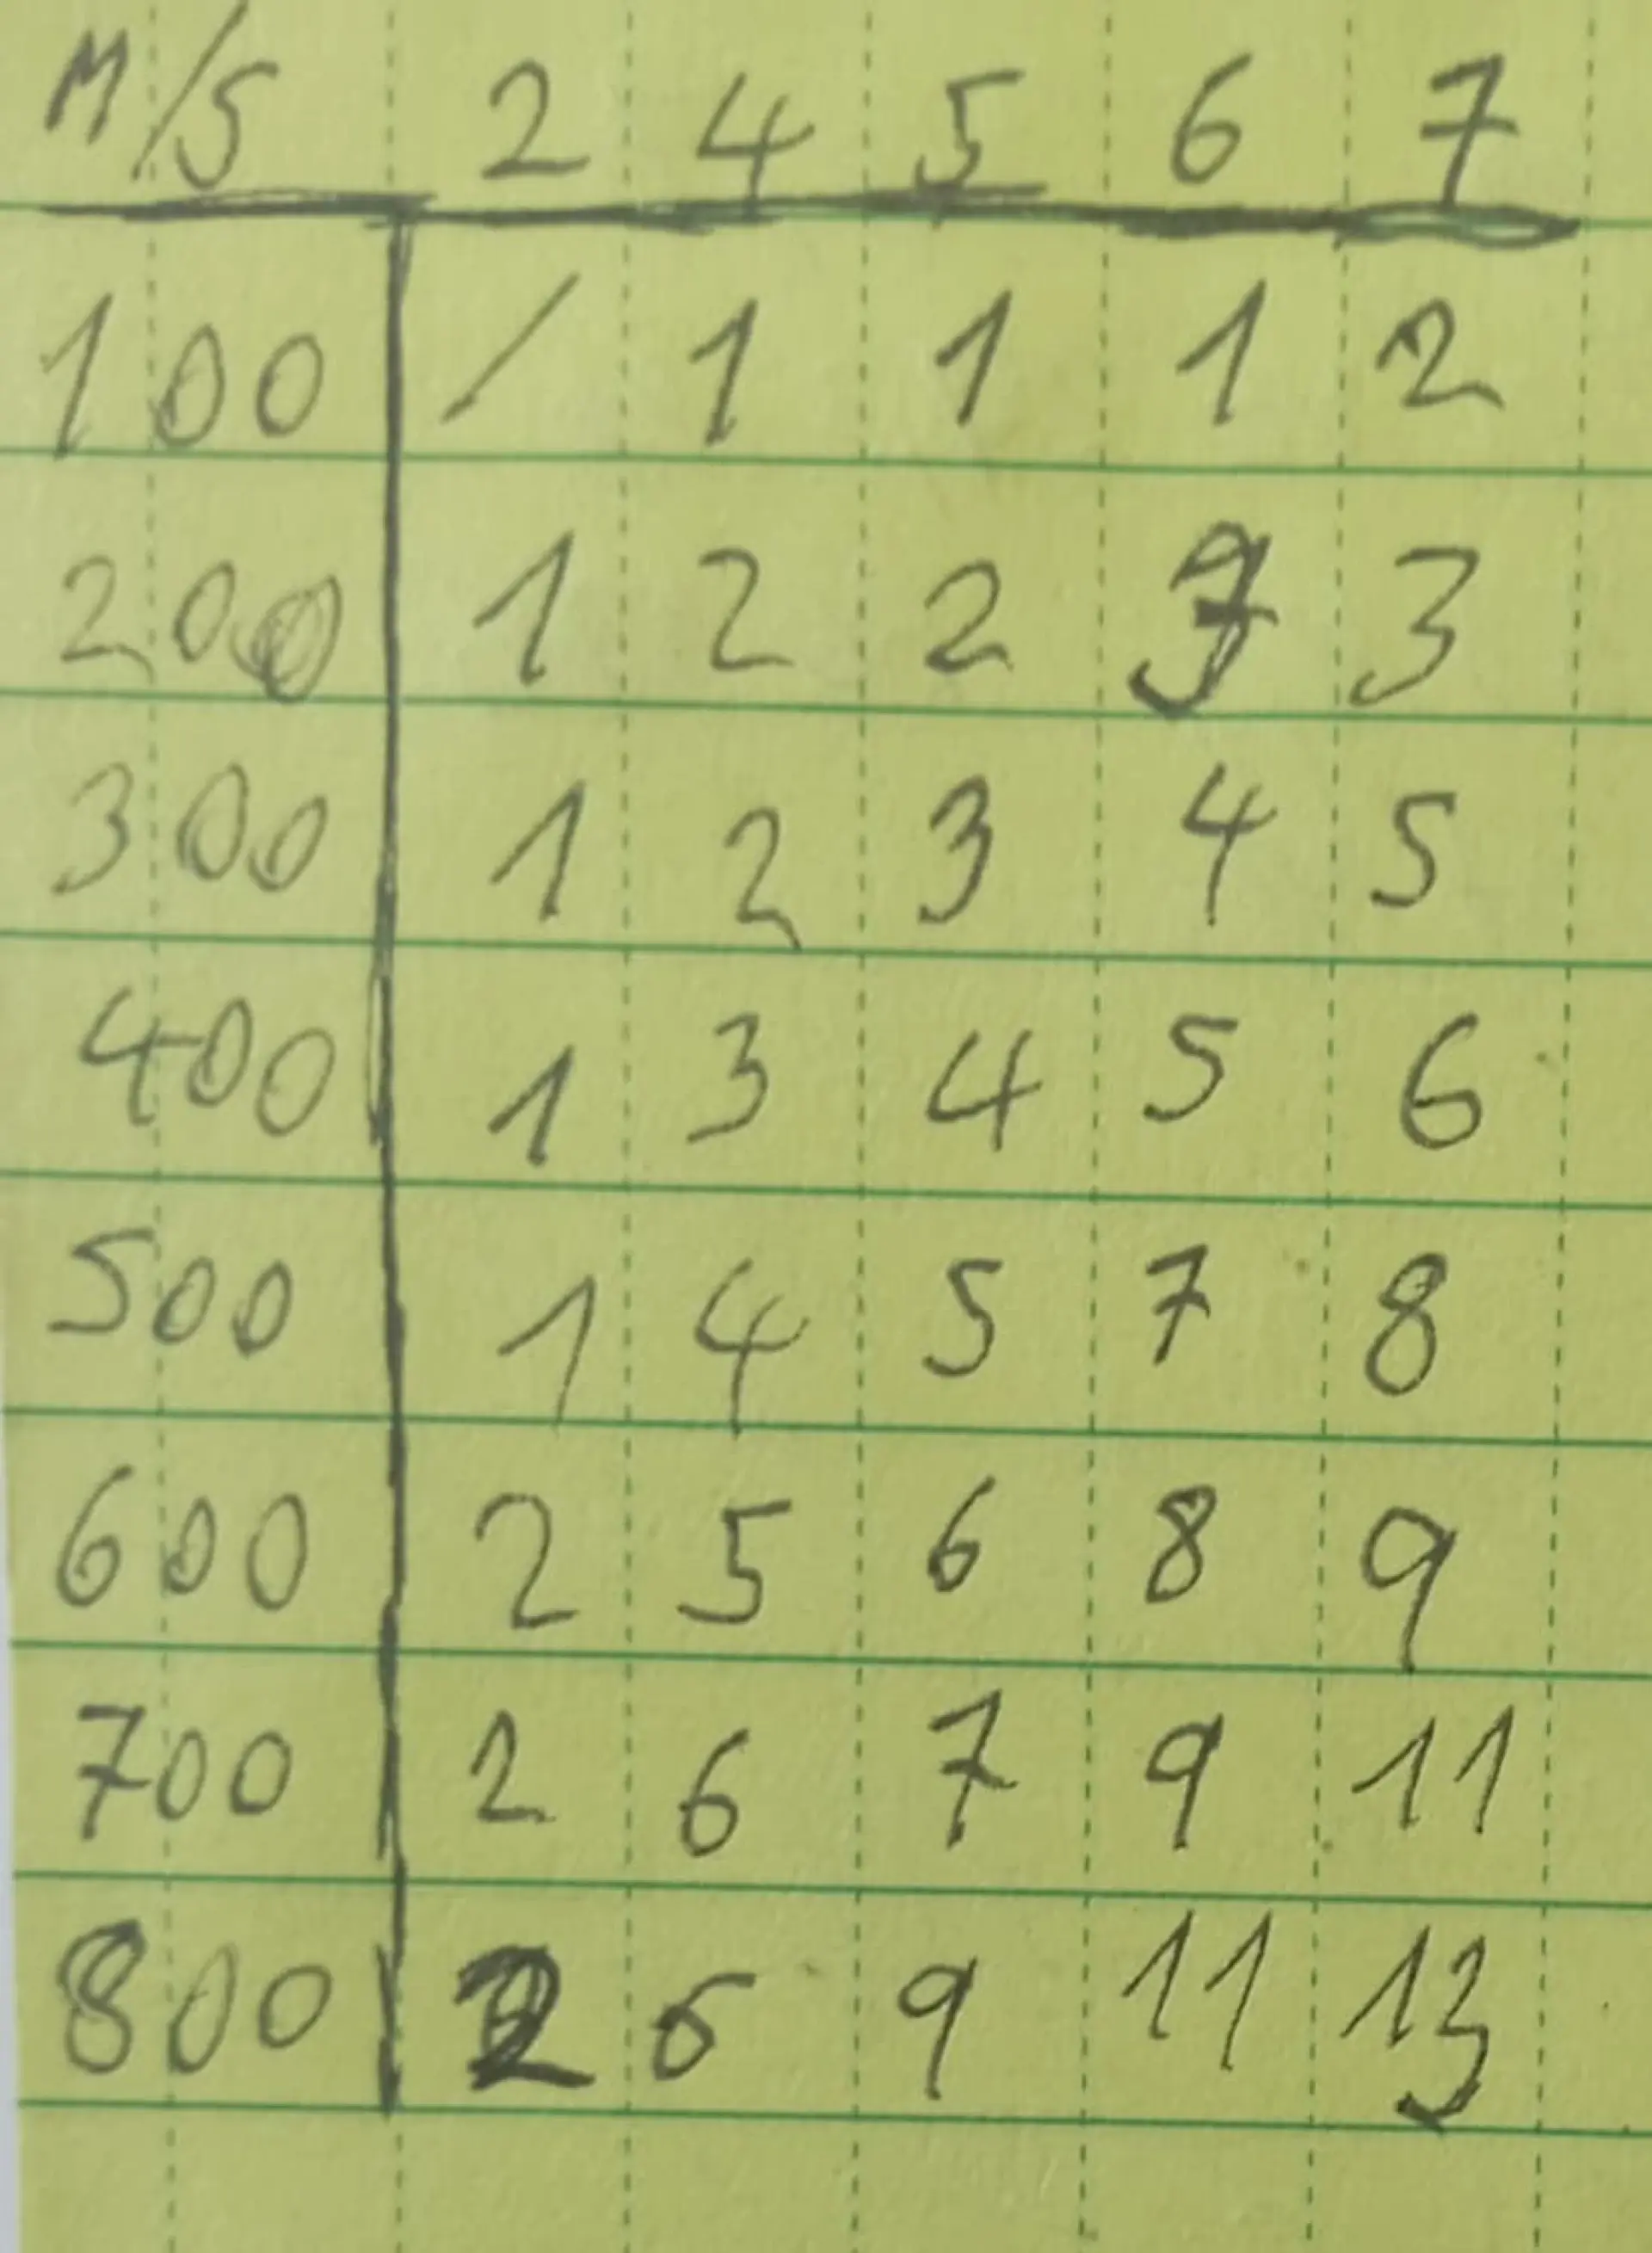 M/S 2 4 5 6 7
100 / 1 1 1 2
200 1 2 2 3 3
300 1 2 3 4 5
400 1 3 4 5 6
500 1 4 5 7 8
600 2 5 6 8 9
700 2 6 7 9 11
800 2 6 9 11 13